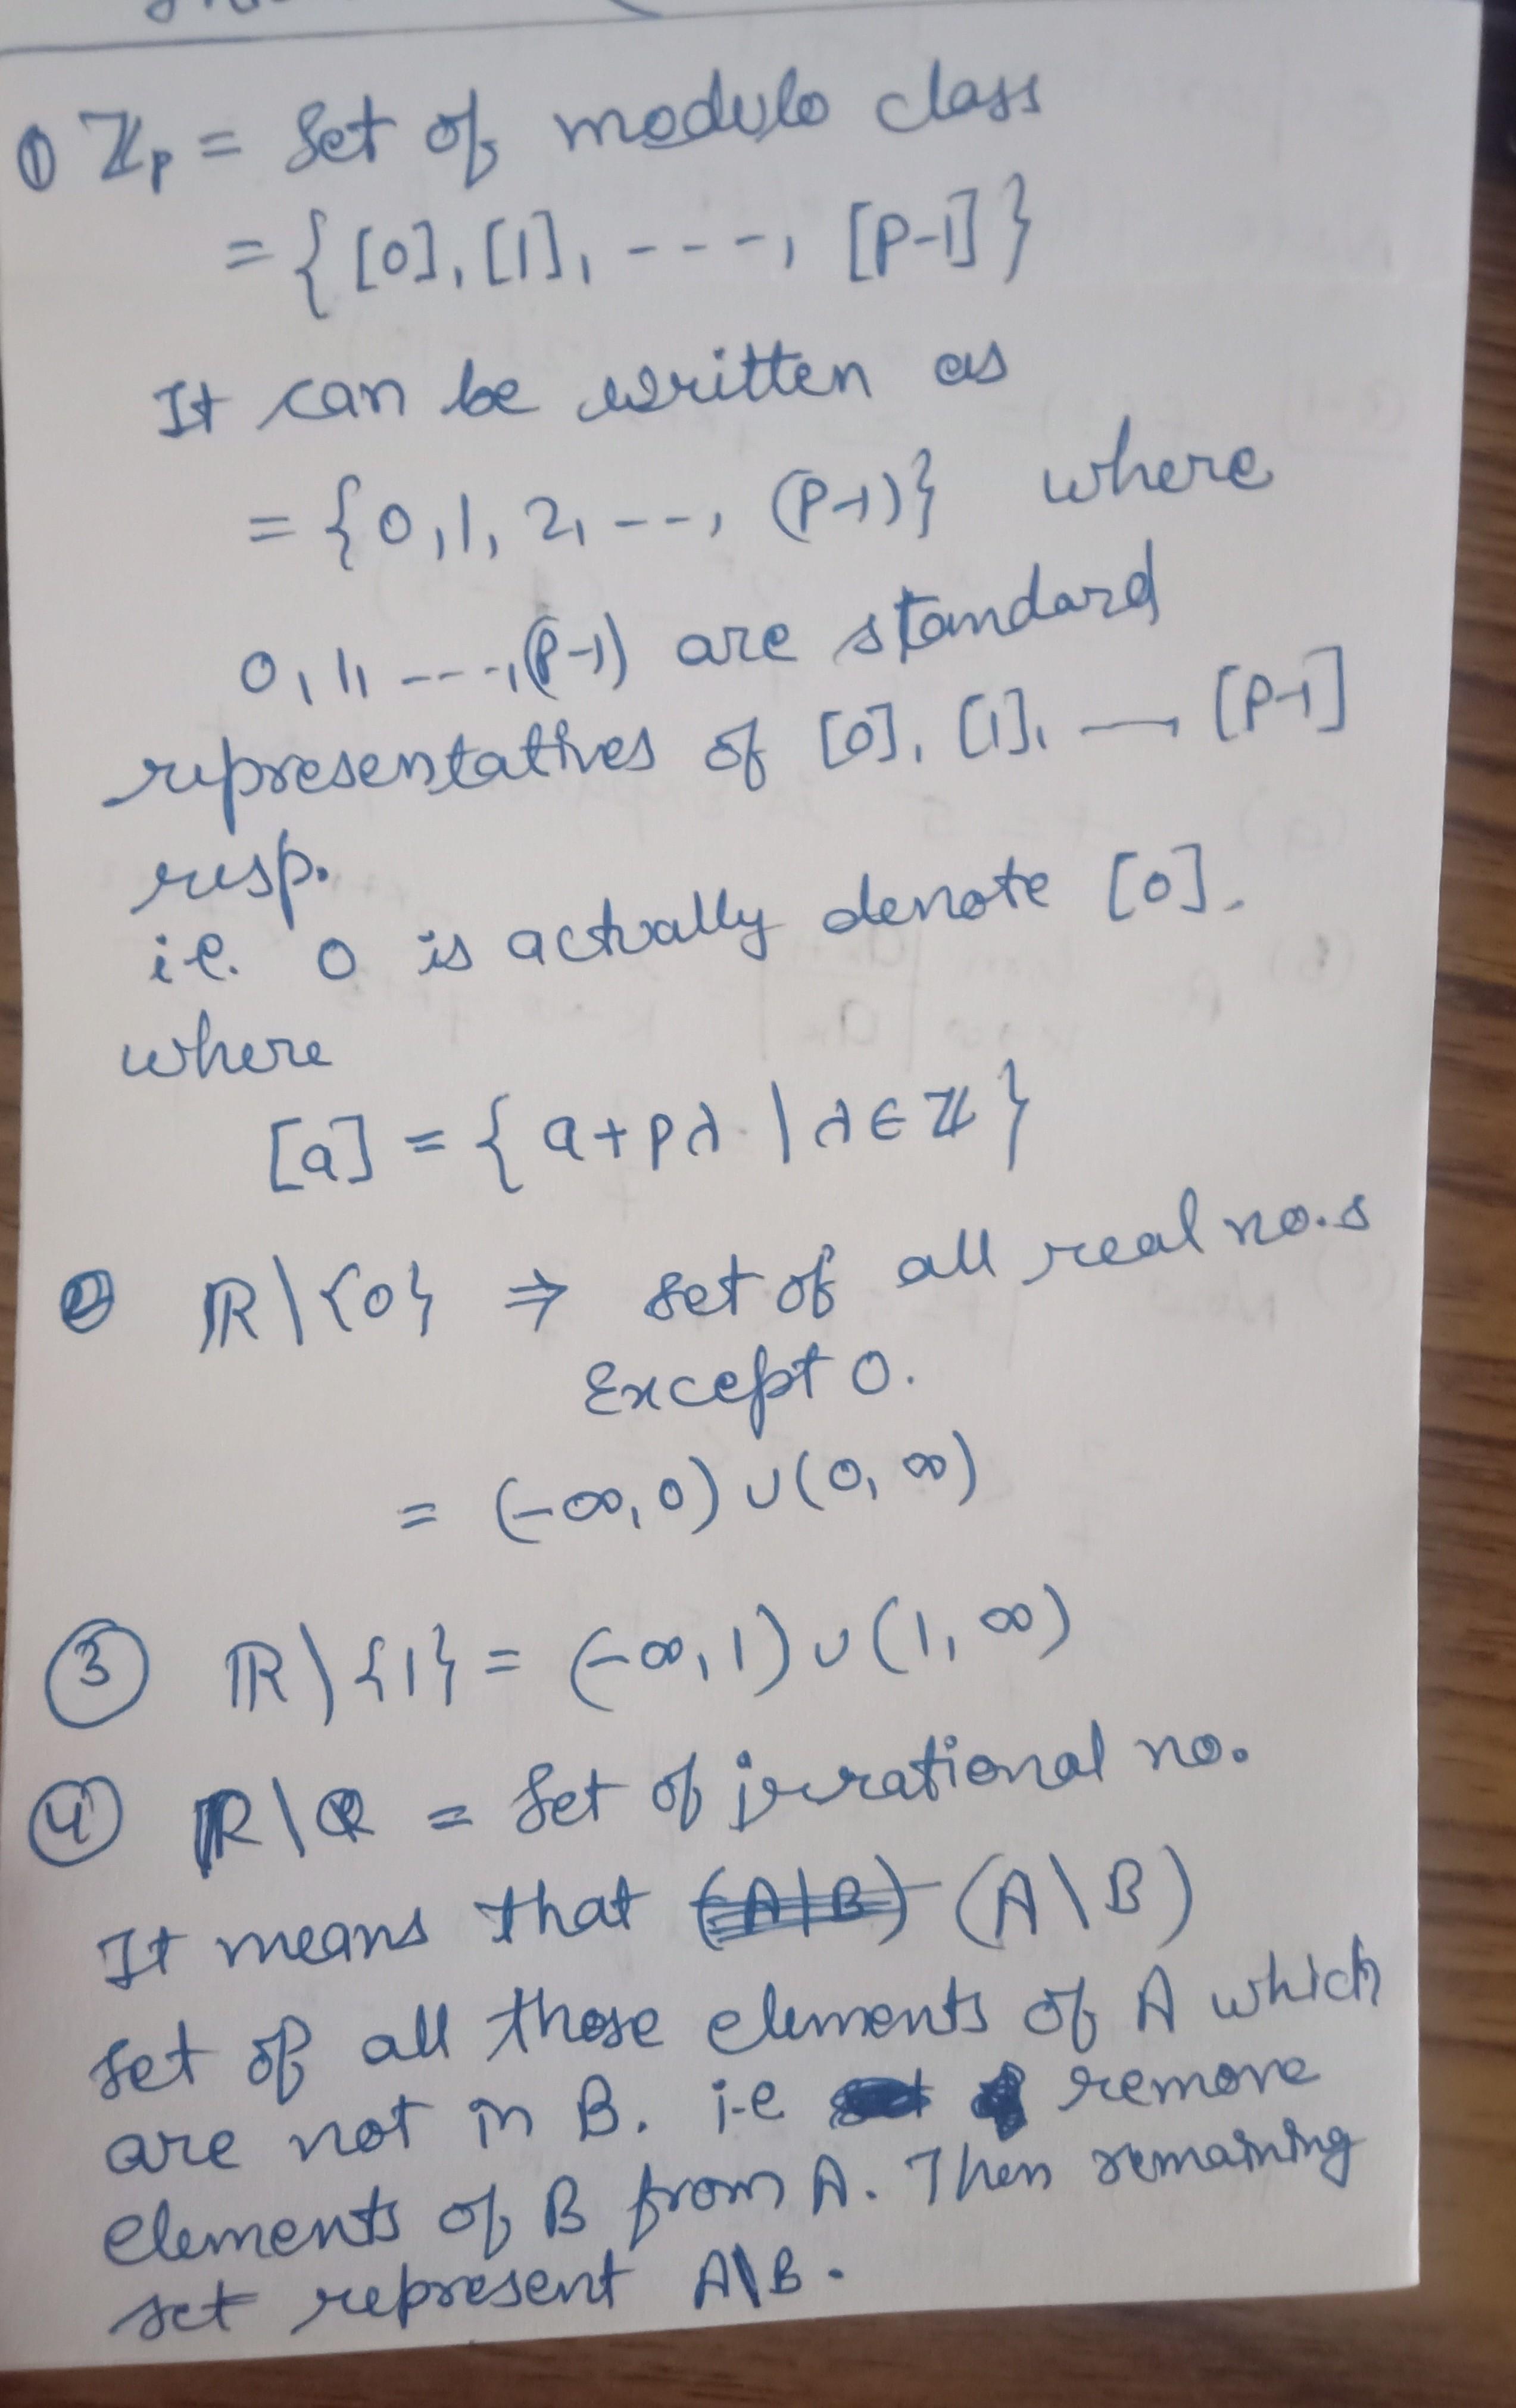 ① ℤₚ = Set of modulo class
= { [0], [1], ----, [P-1] }
It can be written as
= { 0, 1, 2, ---, (P-1) } where
0, 1, ----, (P-1) are standard
representatives of [0], [1], — [P-1]
resp.
i.e. 0 is actually denote [0].
where
[a] = { a + pλ | λ ∈ ℤ }
② ℝ \ {0} ⇒ set of all real no.s
Except 0.
= (-∞, 0) ∪ (0, ∞)
③ ℝ \ {1} = (-∞, 1) ∪ (1, ∞)
④ ℝ \ ℚ = Set of irrational no.
It means that (A|B) (A \ B)
set of all those elements of A which
are not in B. i.e remove
elements of B from A. Then remaining
set represent A\B.